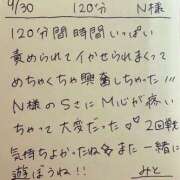 9/30 120分 N様
120分間時間いっぱい
責められてイかせられまくって
めちゃくちゃ興奮しちゃった!!!
N様のSさにM心が疼い
ちゃって大変だった♡♡2回戦
気持ちよかったねまた一緒に
遊ぼうね!! みと